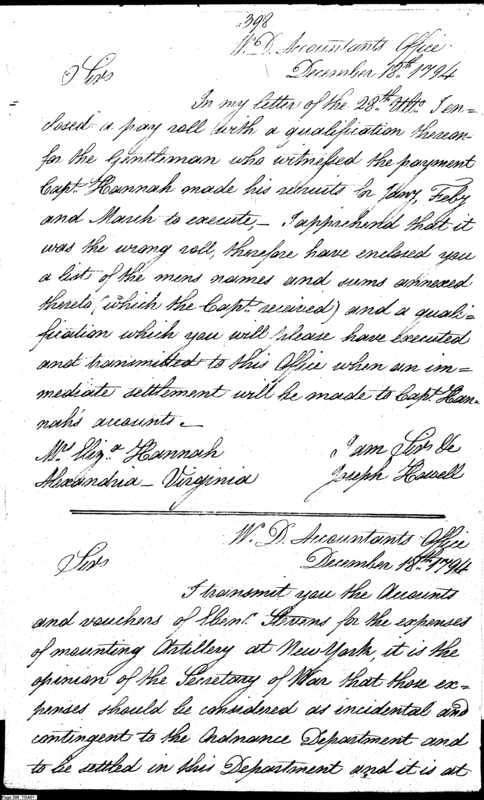 398
W. D. Accountants Office
December 18th. 1794
Sir
In my letter of the 28th. Ulto. I en=
closed a pay roll with a qualification thereon
for the Gentleman who witnessed the payment
Capt. Hannah made his recruits for Jany, Feby
and March to execute,– I apprehend that it
was the wrong roll, therefore have enclosed you
a list of the mens names and sums annexed
thereto (which the Capt. received) and a quali=
fication which you will please have executed
and transmitted to this Office when an im=
mediate settlement will be made to Capt. Han=
nah's accounts.–
Mrs. Eliza. Hannah
I am Sir &c
Alexandria – Virginia
Joseph Howell
W. D. Accountants Office
December 18th. 1794
Sir
I transmit you the Accounts
and vouchers of Ebenr. Stevens for the expenses
of mounting Artillery at New York, it is the
opinion of the Secretary of War that those ex=
penses should be considered as incidental and
contingent to the Ordnance Department and
to be settled in this Department and it is at